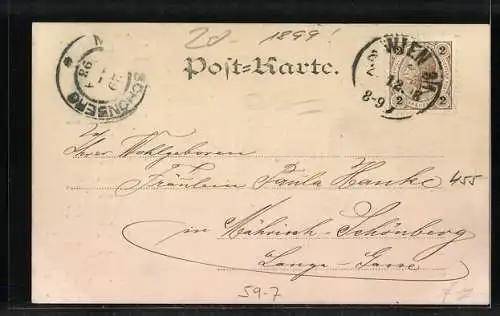 20- 1899!
Post-Karte.
WIEN
2 2
2 2
8-9
SCHÖNBERG
98
Ihrer Wohlgeboren
Fräulein Paula Hanke 455
in Mährisch-Schönberg
Lange-Gasse
59-7